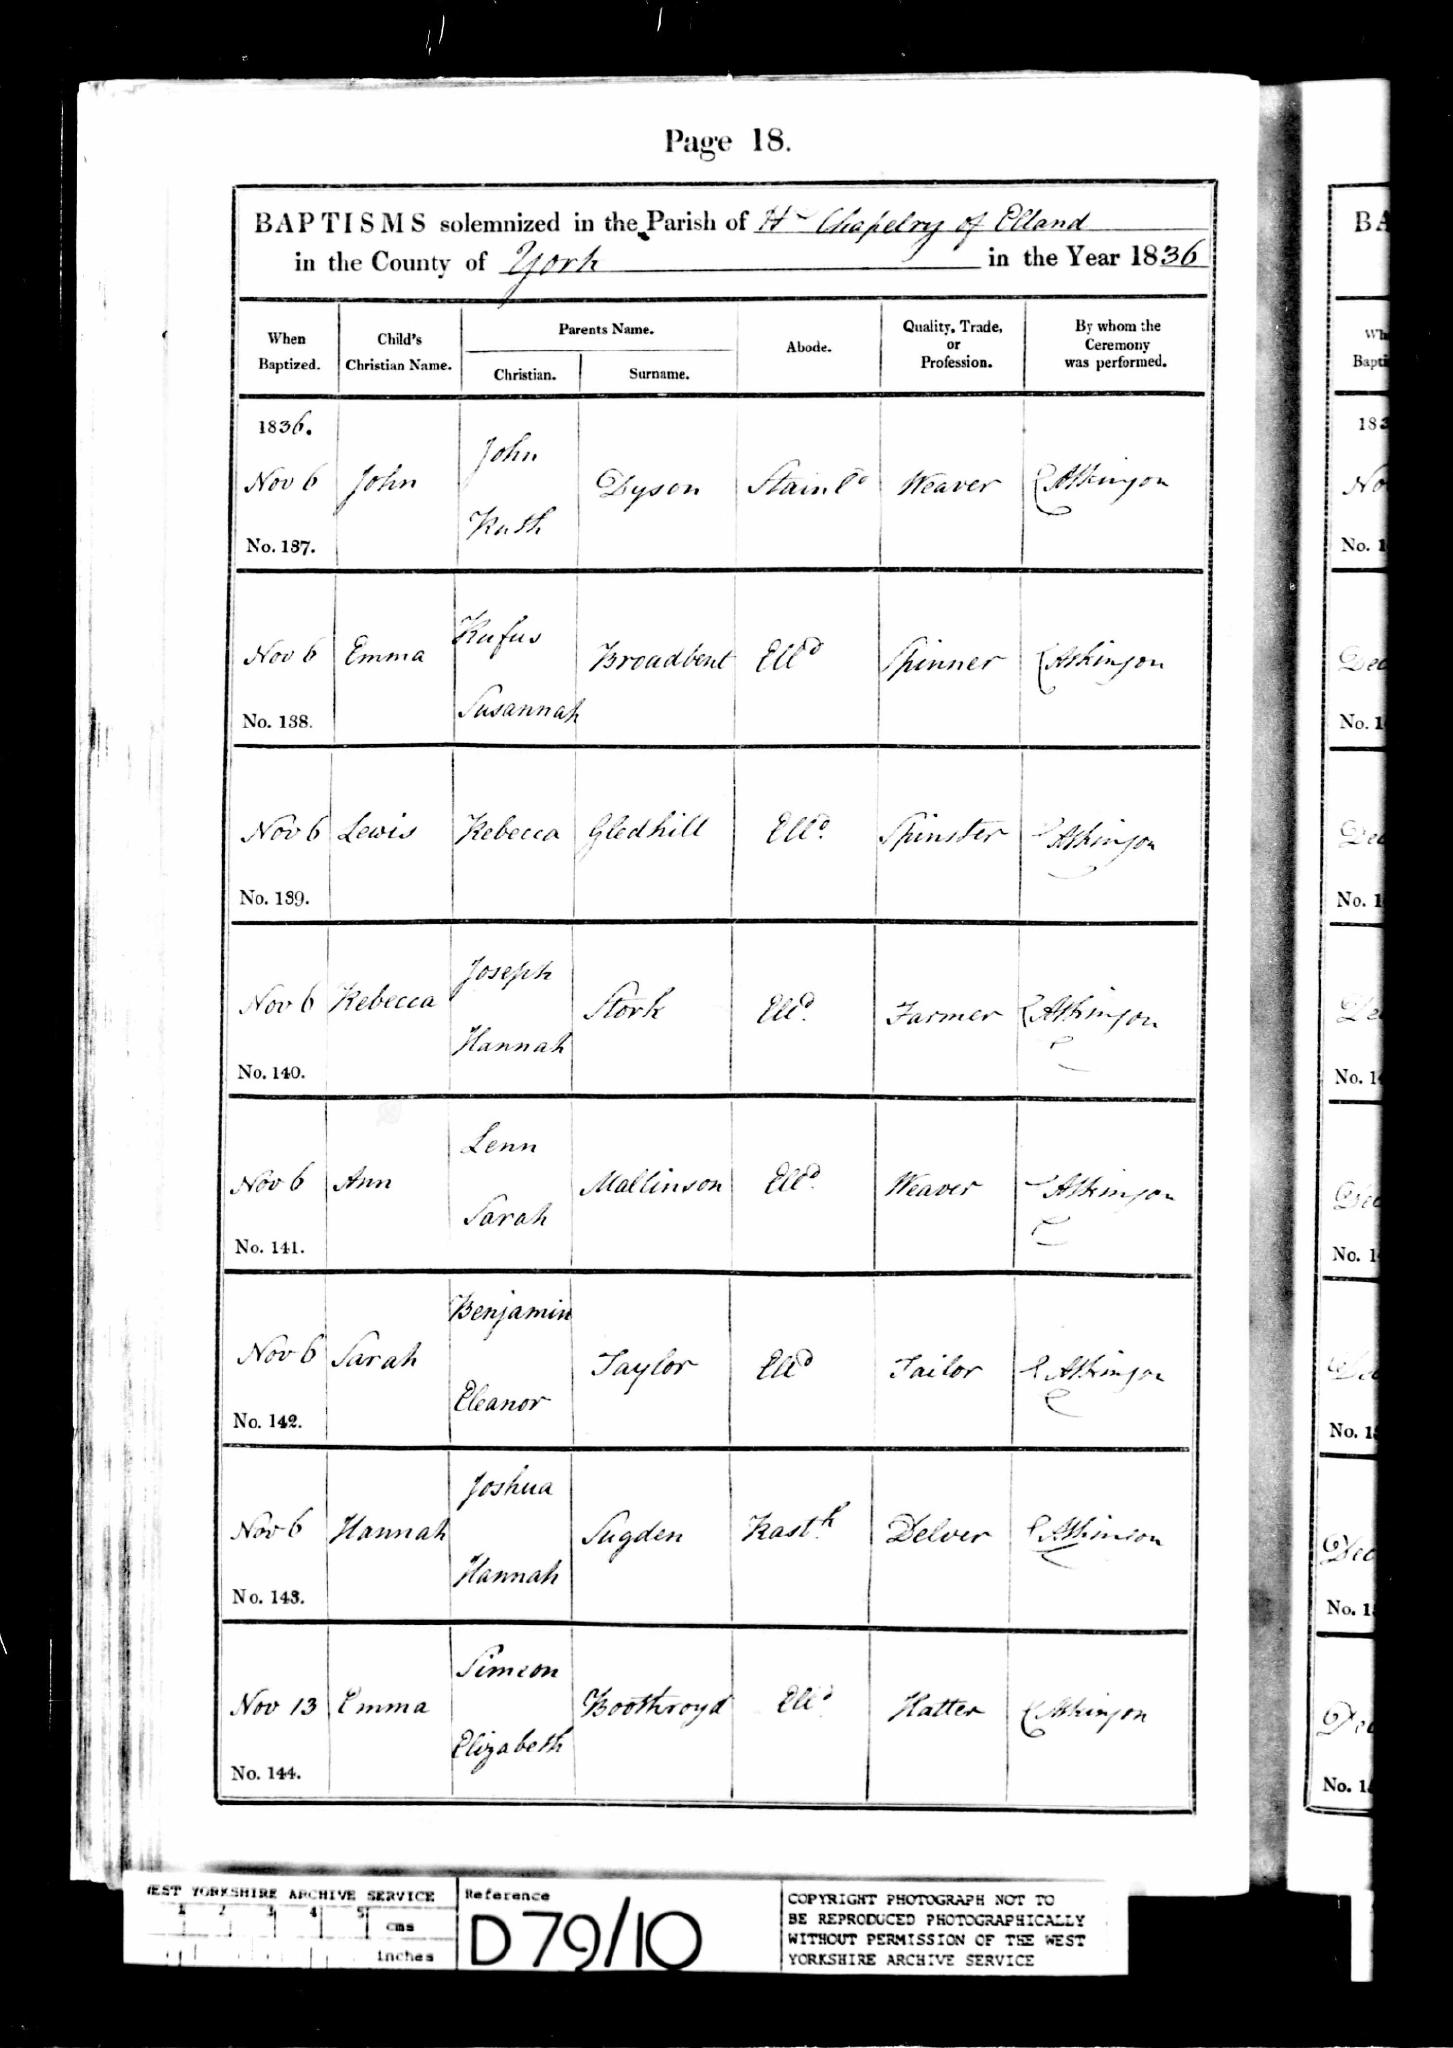 Page 18.
BAPTISMS solemnized in the Parish of Chapelry of Elland
in the County of York in the Year 1836
When Baptized.
Child's Christian Name.
Parents Name.
Christian.
Surname.
Abode.
Quality, Trade, or Profession.
By whom the Ceremony was performed.
1836.
Nov 6
No. 137.
John
John
Ruth
Dyson
Stainld
Weaver
Atkinson
Nov 6
No. 138.
Emma
Rufus
Susannah
Broadbent
Elld
Spinner
Atkinson
Nov 6
No. 139.
Lewis
Rebecca
Gledhill
Elld.
Spinster
Atkinson
Nov 6
No. 140.
Rebecca
Joseph
Hannah
Stork
Elld.
Farmer
Atkinson
Nov 6
No. 141.
Ann
Lenn
Sarah
Mallinson
Elld.
Weaver
Atkinson
Nov 6
No. 142.
Sarah
Benjamin
Eleanor
Taylor
Elld
Tailor
Atkinson
Nov 6
No. 143.
Hannah
Joshua
Hannah
Sugden
Rastk
Delver
Atkinson
Nov 13
No. 144.
Emma
Simeon
Elizabeth
Boothroyd
Elld
Hatter
Atkinson
WEST YORKSHIRE ARCHIVE SERVICE
1 2 3 4 5 cms
inches
Reference
D79/10
COPYRIGHT PHOTOGRAPH NOT TO
BE REPRODUCED PHOTOGRAPHICALLY
WITHOUT PERMISSION OF THE WEST
YORKSHIRE ARCHIVE SERVICE